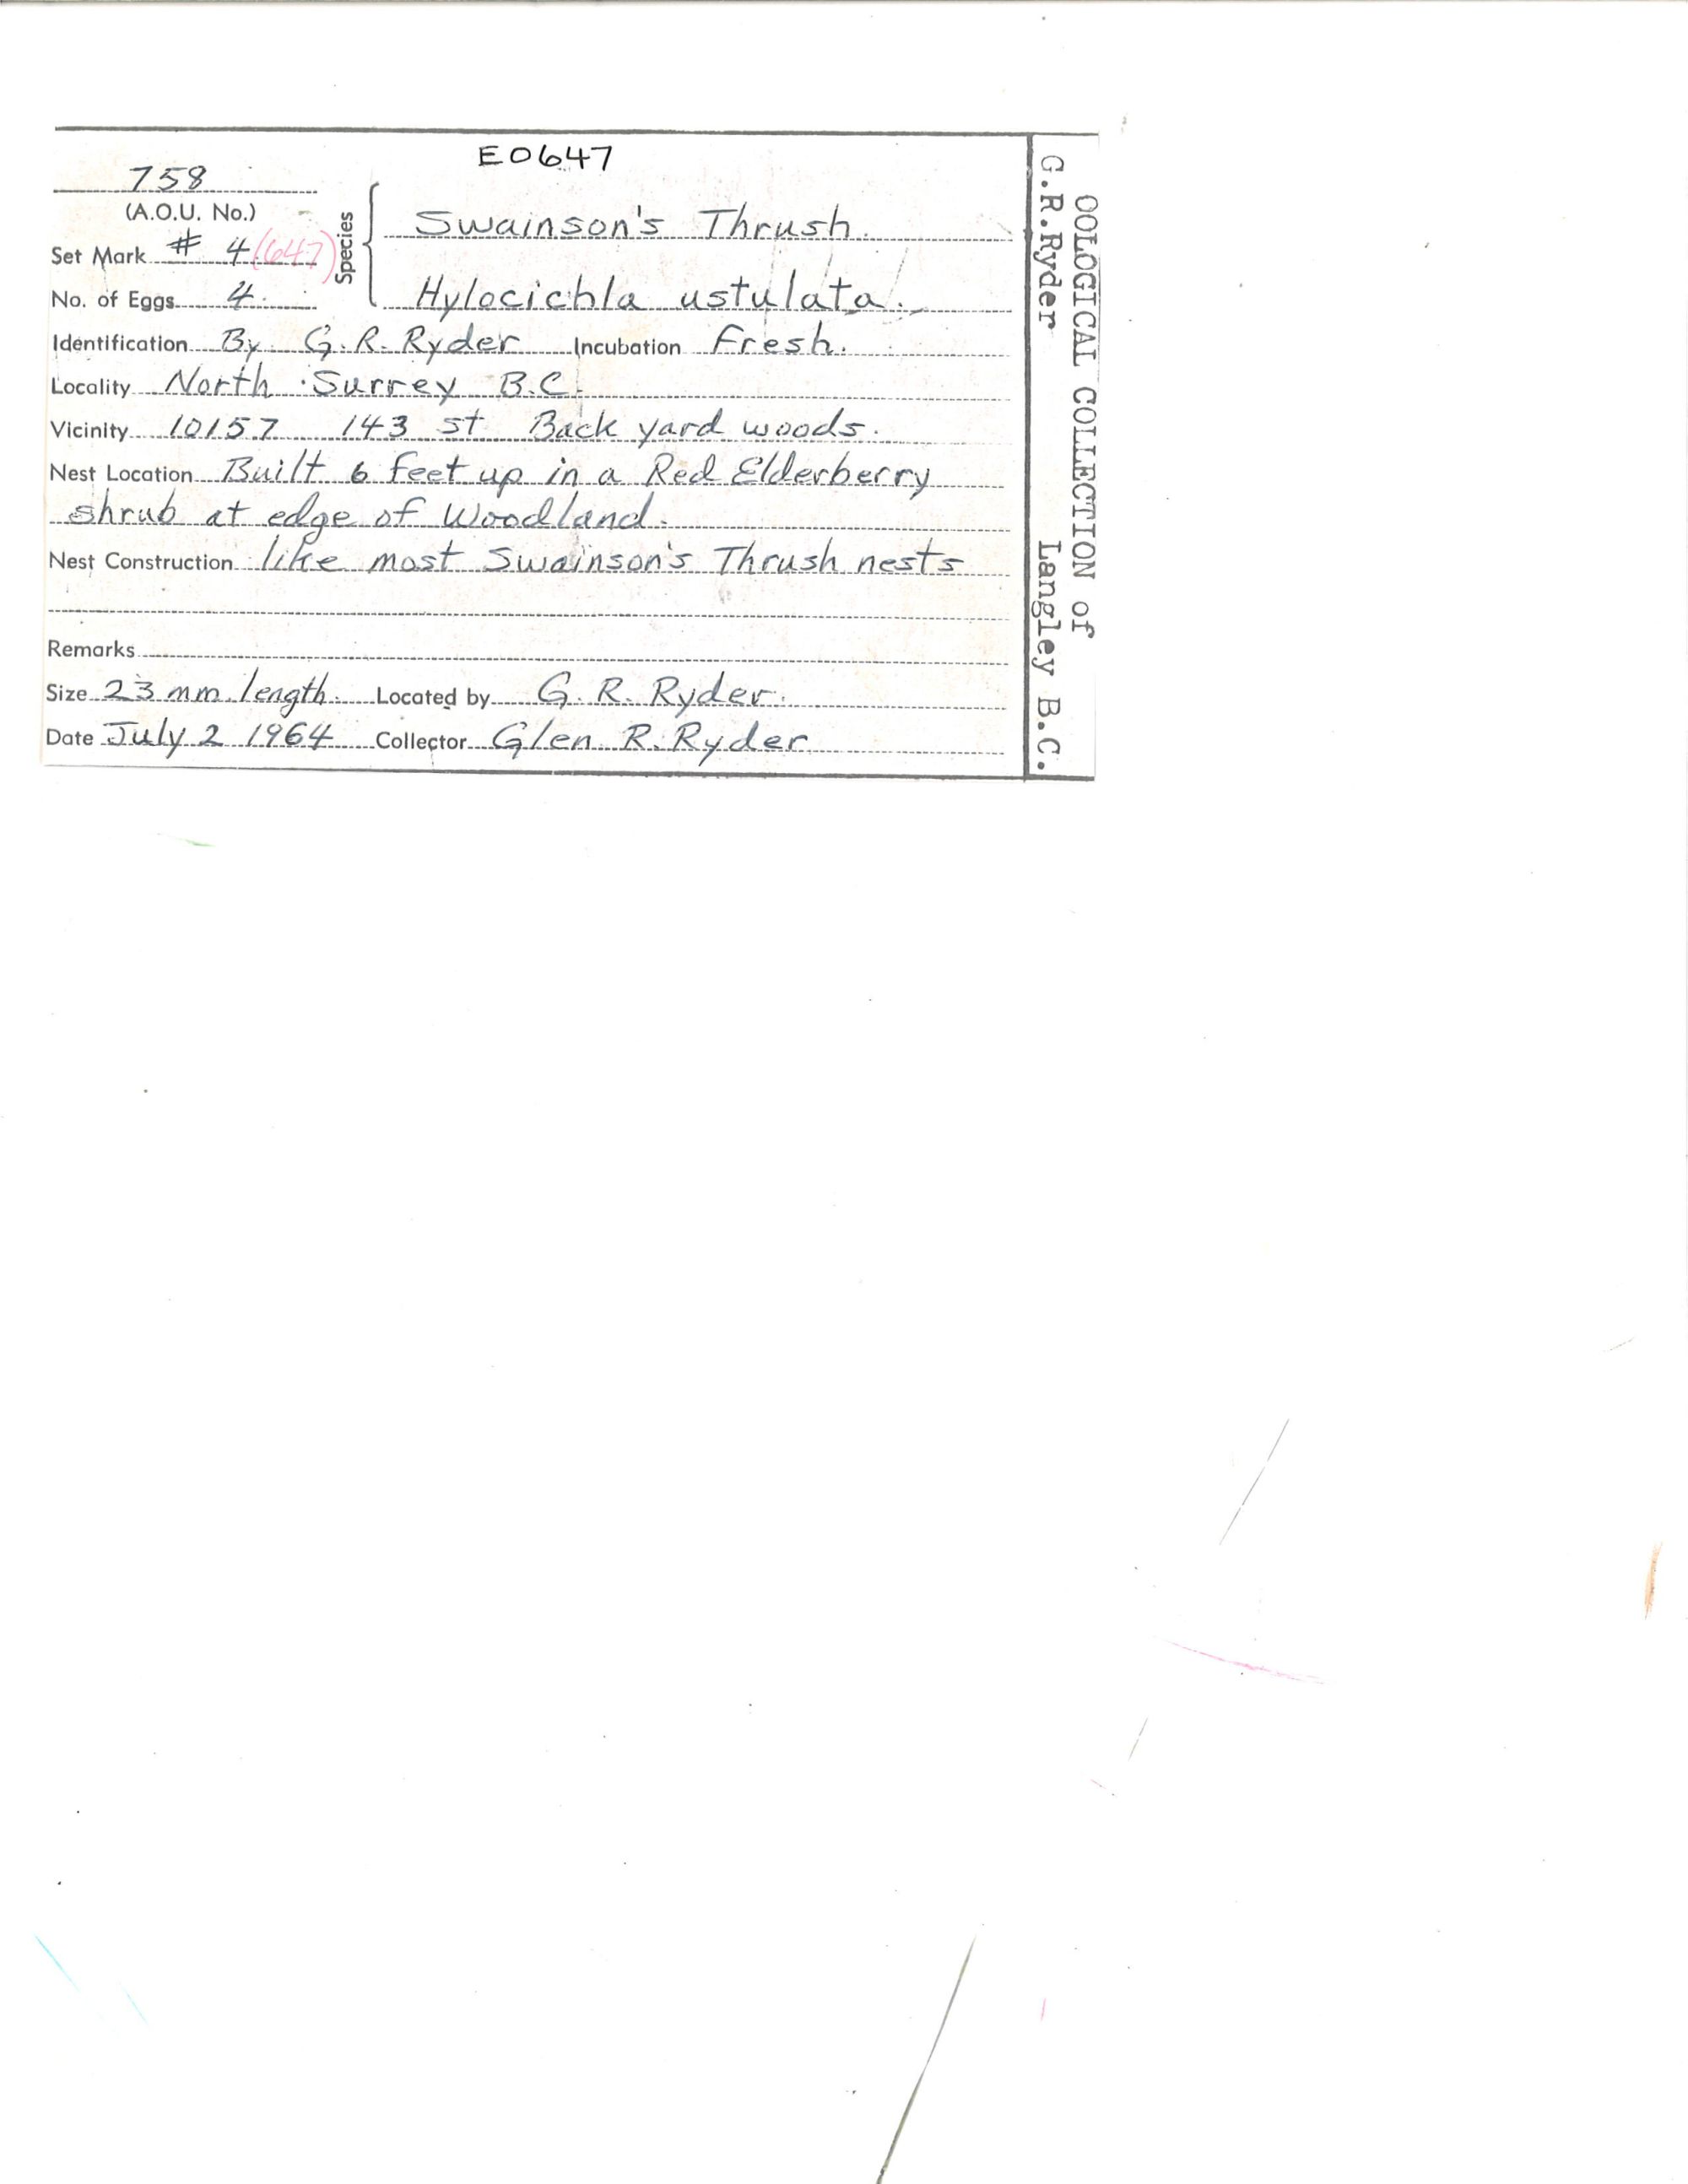 E0647
758
(A.O.U. No.)
Set Mark # 4 (647)
No. of Eggs 4.
Species
Swainson's Thrush.
Hylocichla ustulata.
Identification By G.R. Ryder Incubation Fresh.
Locality North Surrey B.C.
Vicinity 10157 143 st Back yard woods.
Nest Location Built 6 feet up in a Red Elderberry
shrub at edge of Woodland.
Nest Construction like most Swainson's Thrush nests
Remarks
Size 23 mm. length. Located by G. R. Ryder.
Date July 2 1964 Collector Glen R. Ryder
OOLOGICAL COLLECTION of
G.R.Ryder Langley B.C.